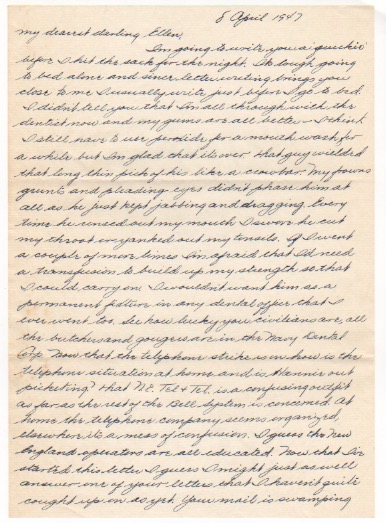 8 April 1947
My dearest darling Ellen,
I'm going to write you a "quickie"
before I hit the sack for the night. It's tough going
to bed alone and since letter writing brings you
close to me I usually write just before I go to bed.
I didn't tell you that I'm all through with the
dentist now and my gums are all better – I think.
I still have to use peroxide for a mouth wash for
a while but I'm glad that it's over. That guy wielded
that long thin pick of his like a crowbar. My
grunts and pleading eyes didn't phase him at
all as he just kept jabbing and dragging. Every
time he rinsed out my mouth I swore he cut
my throat or yanked out my tonsils. If I went
a couple of more times I'm afraid that I'd need
a transfusion to build up my strength so that
I could carry on. I wouldn't want him as a
permanent fixture in any dental office that I
ever went too. See how lucky you civilians are, all
the butchers and gougers are in the Navy Dental
Corp. Now that the telephone strike is on how is the
telephone situation at home and is out
picketing? That N.E. Tel & Tel. is a confusing outfit
as far as the rest of the Bell System is concerned. At
home the telephone company seems organized,
elsewhere it's a mess of confusion. I guess the New
England operators are all educated. Now that I've
started this letter I guess I might just as well
answer one of your letters that I haven't quite
caught up on as yet. Your mail is swamping